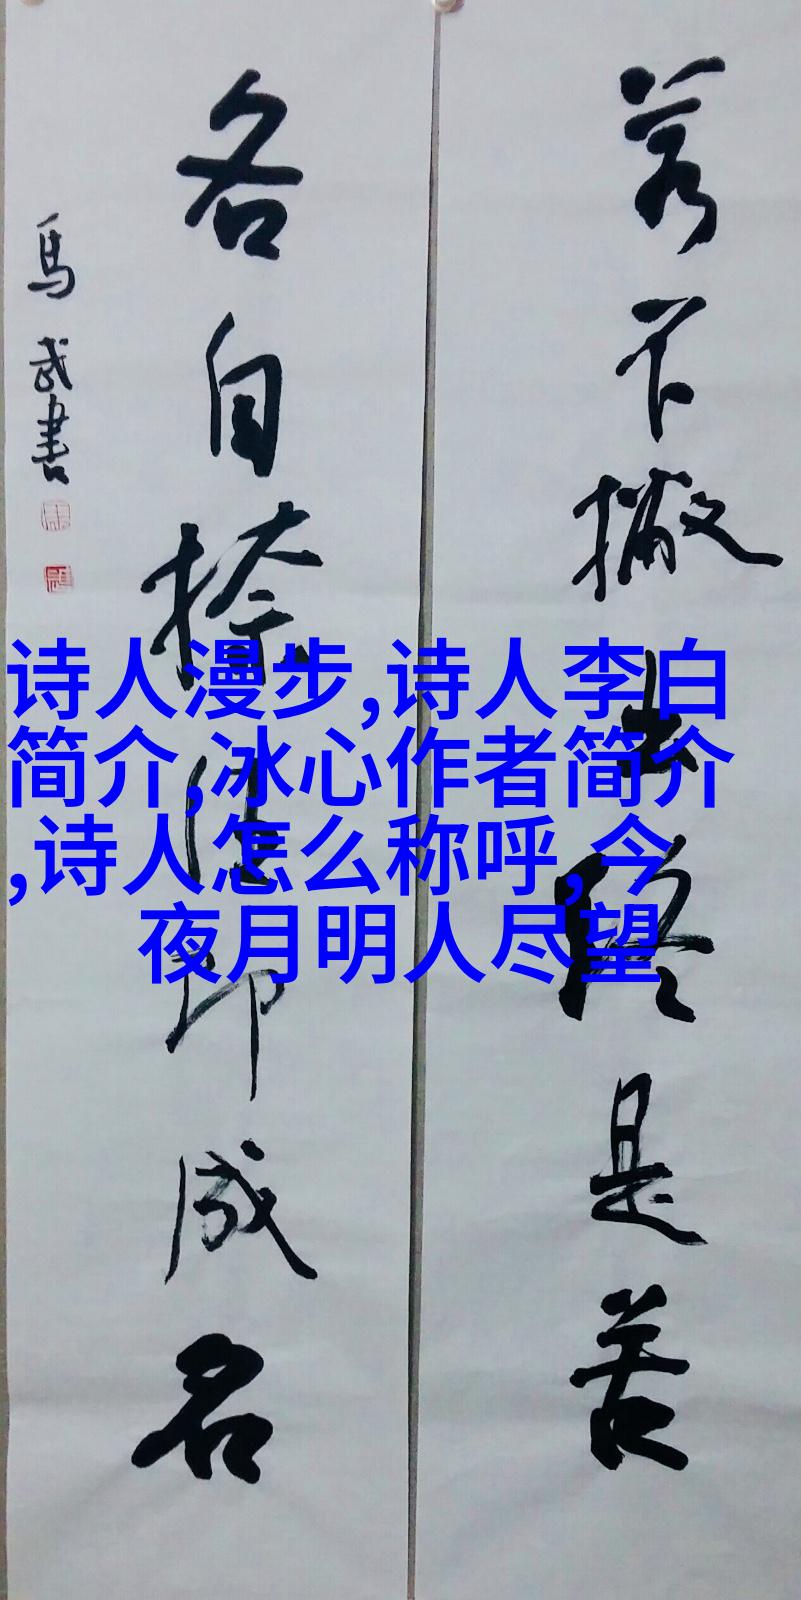 若不撇出終是苦
各自捺住即成名
馬武書
诗人漫步,诗人李白
简介,冰心作者简介
,诗人怎么称呼,今
夜月明人尽望